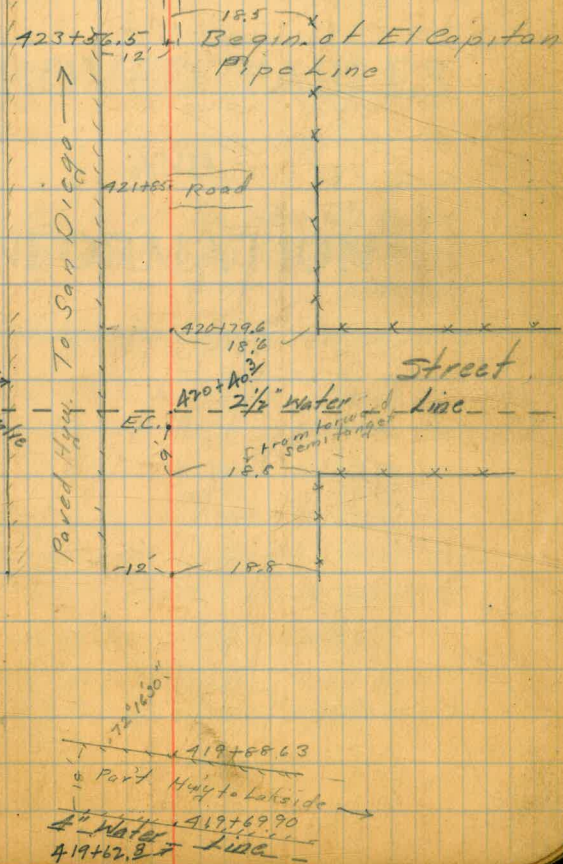 18.5
423+56.5 Begin. of El Capitan
12'
Pipe Line
Paved Hyw. To San Diego
421+85 Road
420+79.6
18.6
Street
420+40.3
2 1/2" Water Line
E.C.
from forward
semi tangent
9'
18.8
12'
18.8
72°16'30"
419+88.63
18' Par't Hwy to Lakside
419+69.90
4" Water Line
419+62.8